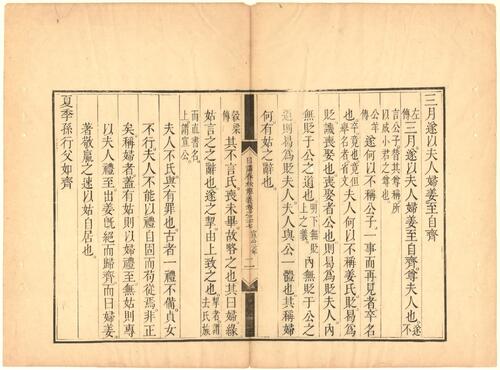 三月遂以夫人婦姜至自齊
左傳三月遂以夫人婦姜至自齊尊夫人也不
言公子替其尊稱所以成小君之尊也遂
公羊傳遂何以不稱公子一事而再見者卒名
也卒竟也但舉名者省文夫人何以不稱姜氏貶曷為
貶譏喪娶也喪娶者公也則曷為貶夫人內
無貶于公之道也明下無貶上之義內無貶于公之
道則曷為貶夫人夫人與公一體也其稱婦
何有姑之辭也
日講春秋解義卷之二十七 宣公元年 二
穀梁傳其不言氏喪未畢故略之也其曰婦緣
姑言之之辭也遂之挈由上致之也挈者謂去氏族
而直書名上謂宣公
夫人不氏與有罪也古者一禮不備貞女
不行夫人不能以禮自固而苟從焉非正
矣稱婦者蓋有姑則以婦禮至無姑則專
以夫人禮至出姜旣絕而歸齊而曰婦姜
著敬嬴之速以姑自居也
夏季孫行父如齊